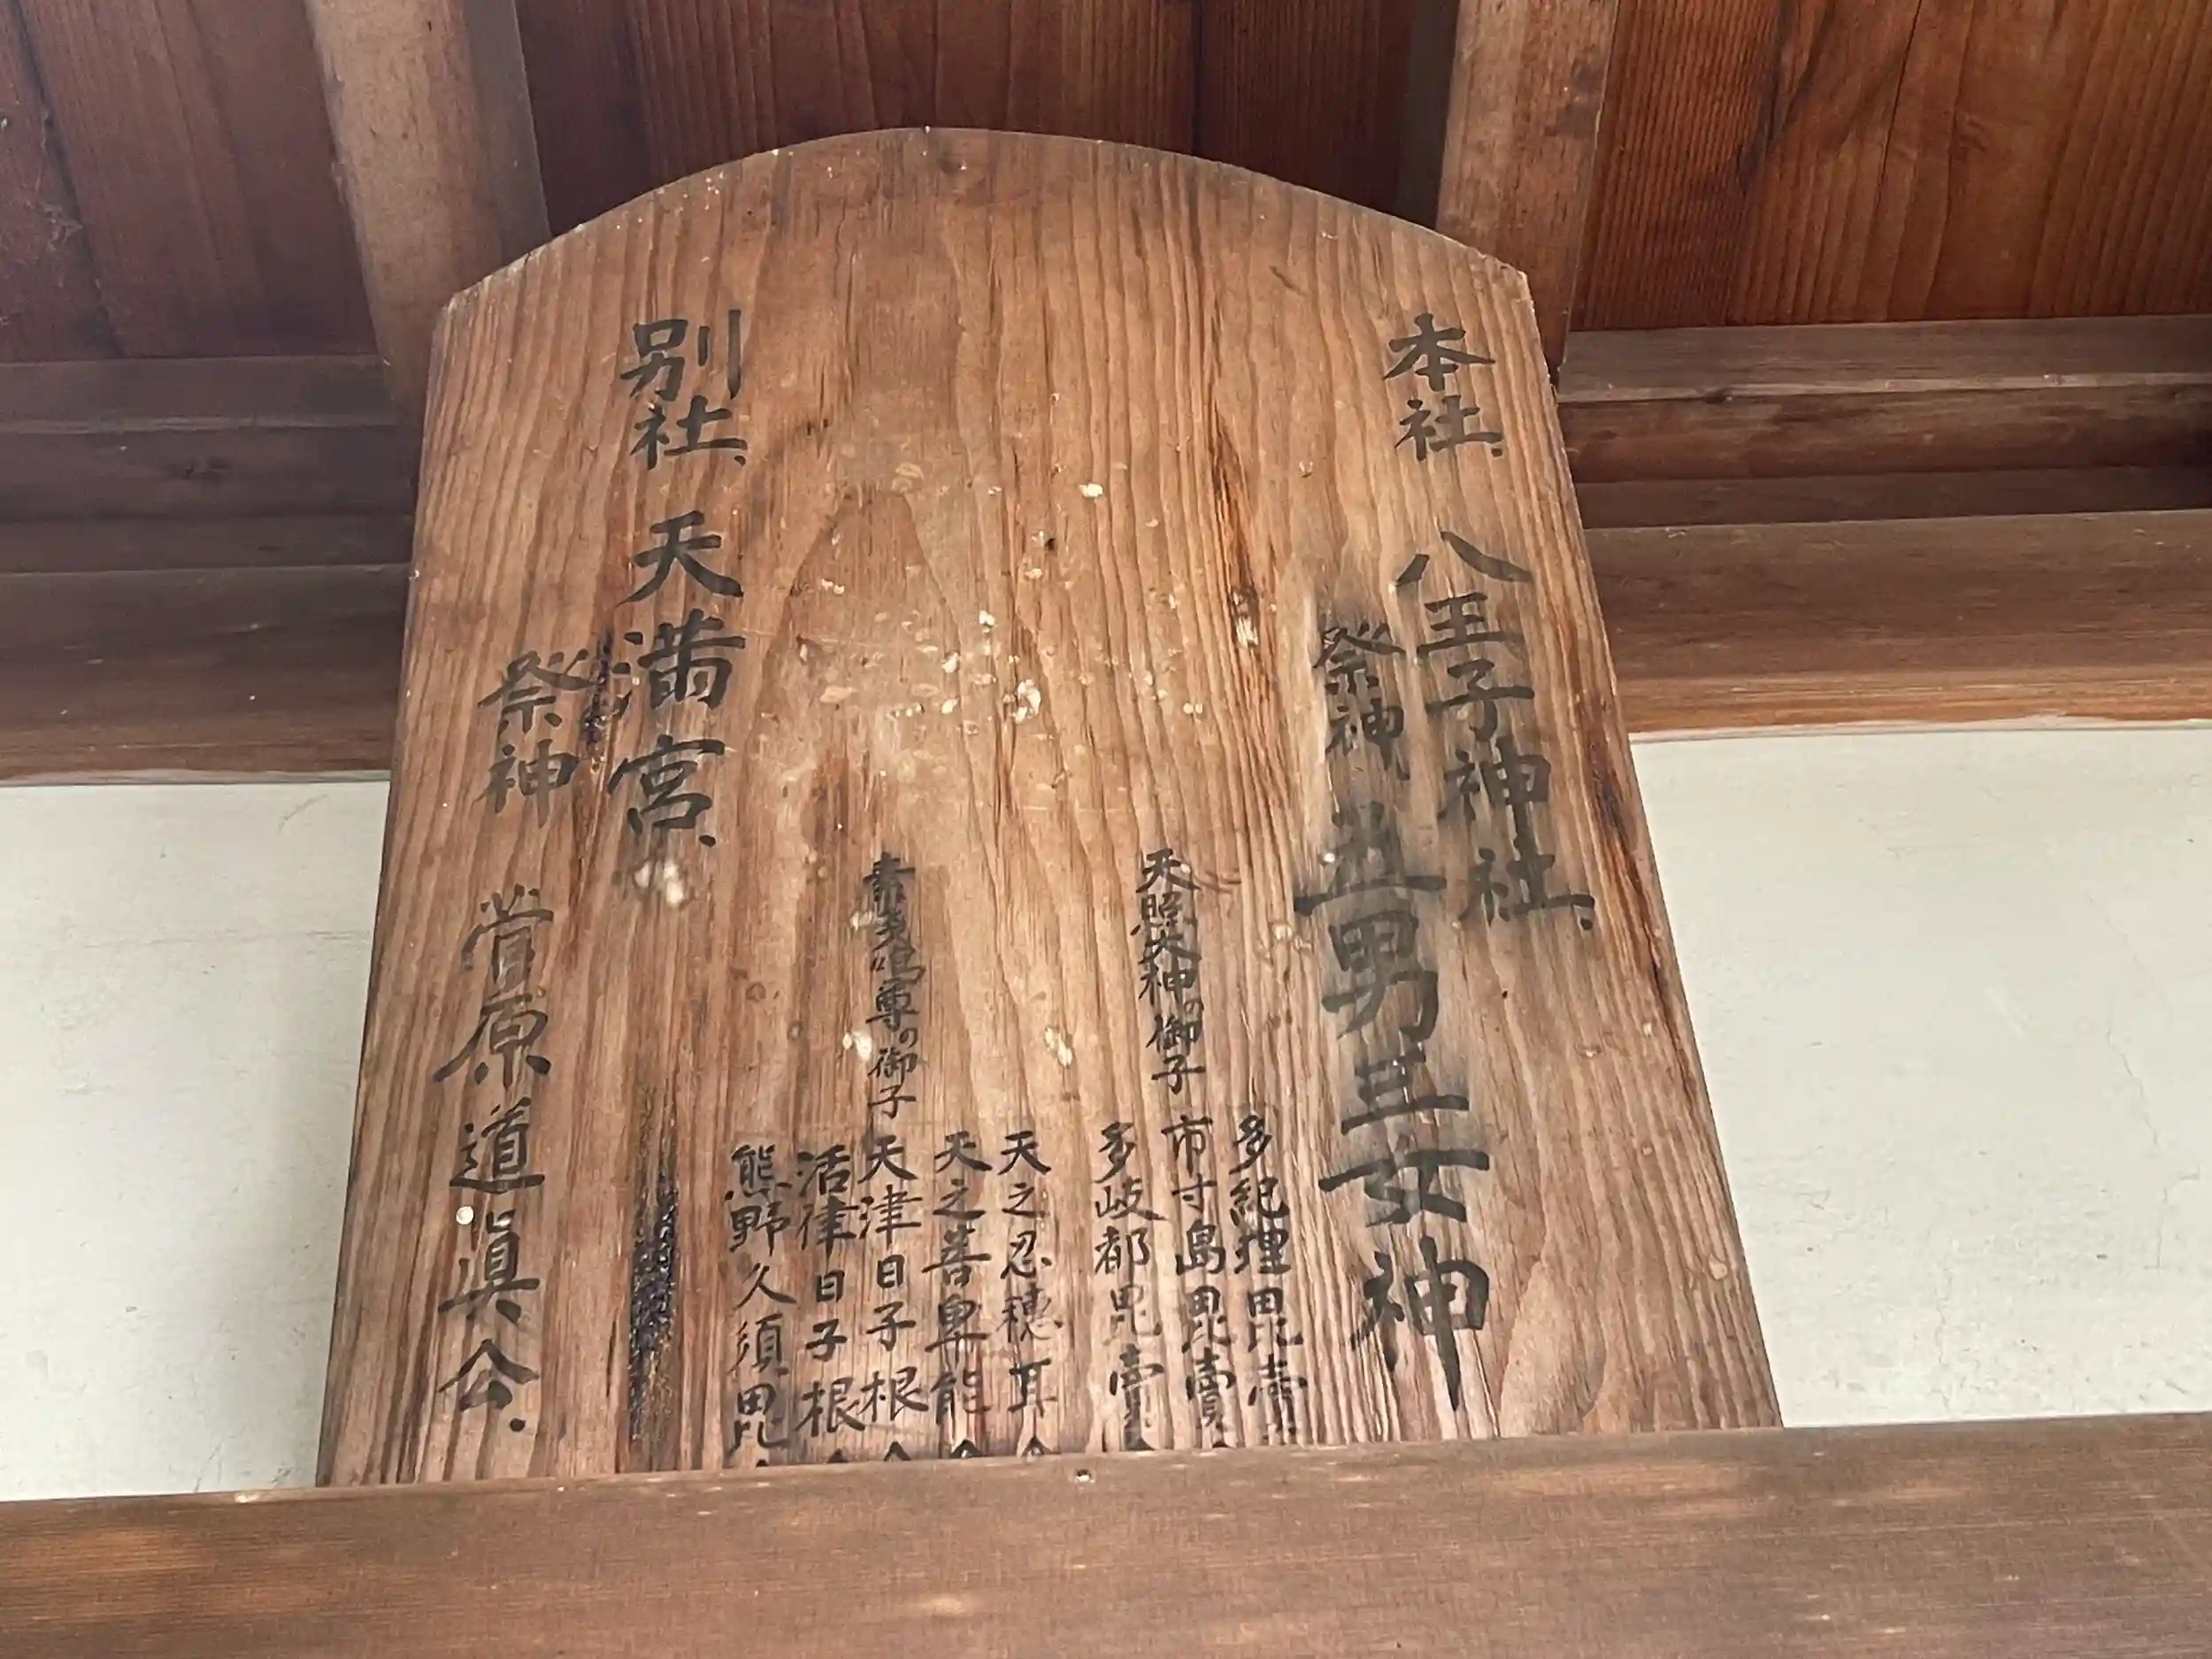 本社、八王子神社、
祭神、五男三女神
天照大神の御子
多紀理毘賣
市寸島毘賣
多岐都毘賣
素戔嗚尊の御子
天之忍穂耳
天之善卑能
天津日子根
活津日子根
熊野久須毘
別社、天満宮、
祭神
菅原道眞公、